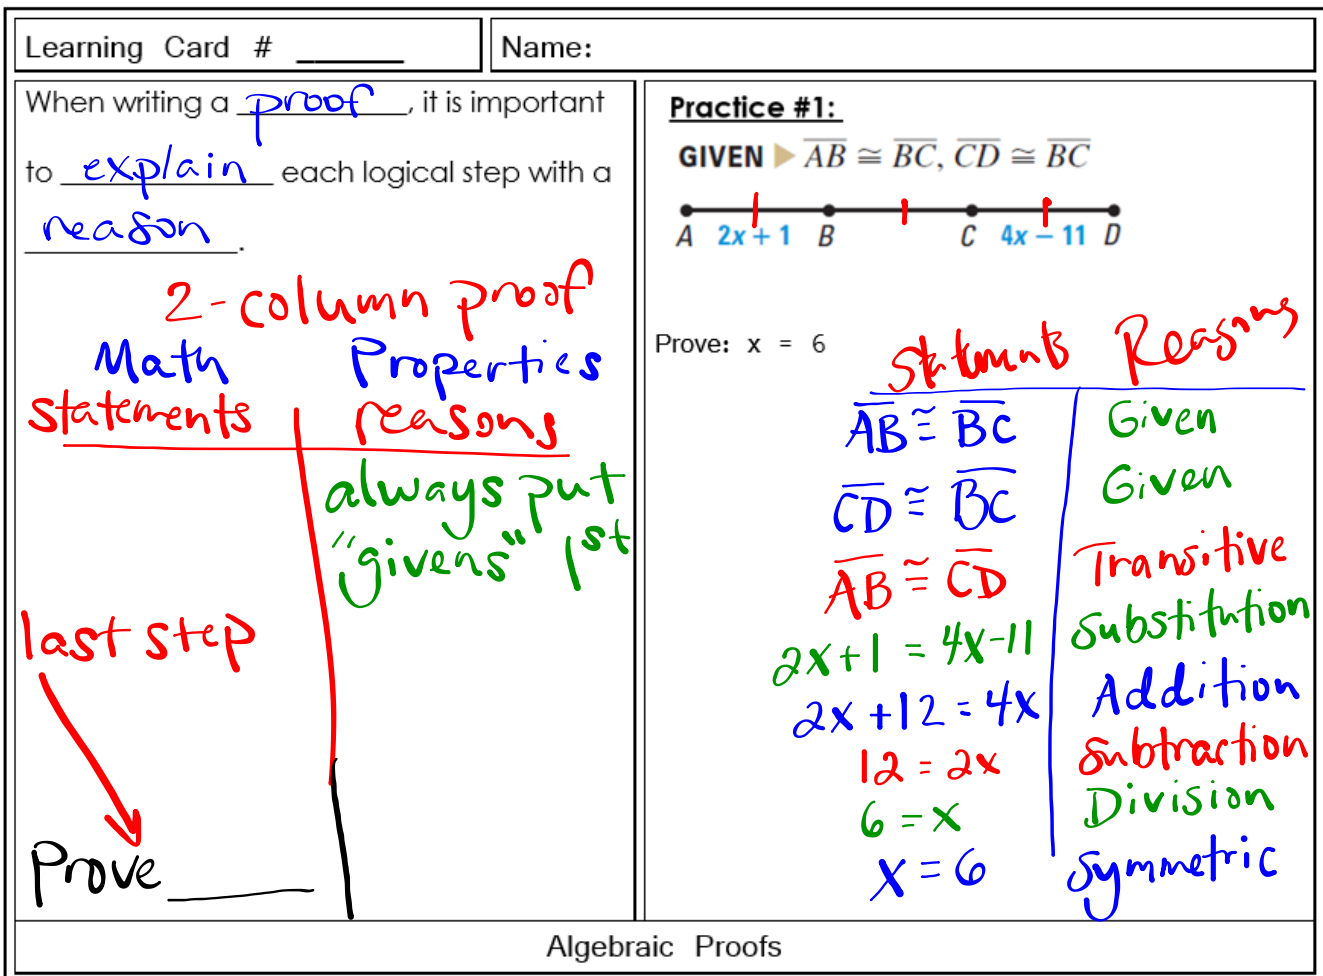 Learning Card # ______
Name:
When writing a proof, it is important
to explain each logical step with a
reason.
2-column proof
Math Properties
statements reasons
always put
"givens" 1st
last step
Prove ______
Practice #1:
GIVEN ▶ A̅B̅ ≅ B̅C̅, C̅D̅ ≅ B̅C̅
A 2x + 1 B C 4x − 11 D
Prove: x = 6
Statments Reasons
A̅B̅ ≅ B̅C̅ Given
C̅D̅ ≅ B̅C̅ Given
A̅B̅ ≅ C̅D̅ Transitive
2x+1 = 4x-11 Substitution
2x+12 = 4x Addition
12 = 2x Subtraction
6 = x Division
x = 6 Symmetric
Algebraic Proofs